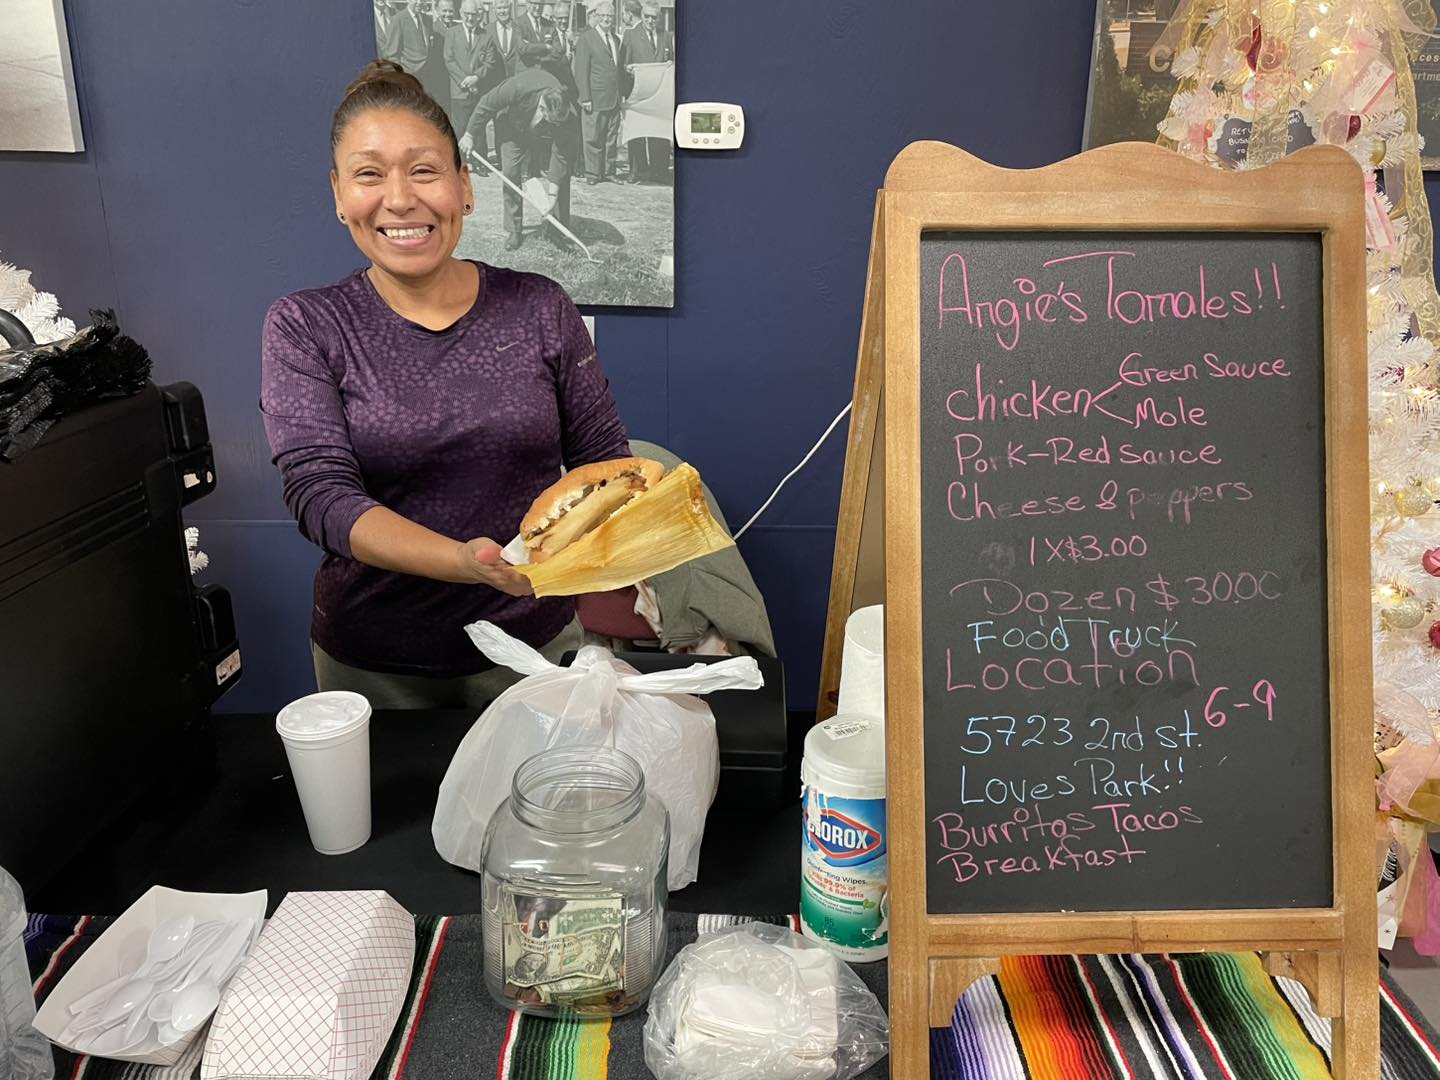 Angie's Tamales!!
Chicken < Green Sauce
Mole
Pork-Red sauce
Cheese & peppers
1 X $3.00
Dozen $30.00
Food Truck
Location
6-9
5723 2nd st.
Loves Park!!
Burritos Tacos
Breakfast
CLOROX
Disinfecting Wipes
85